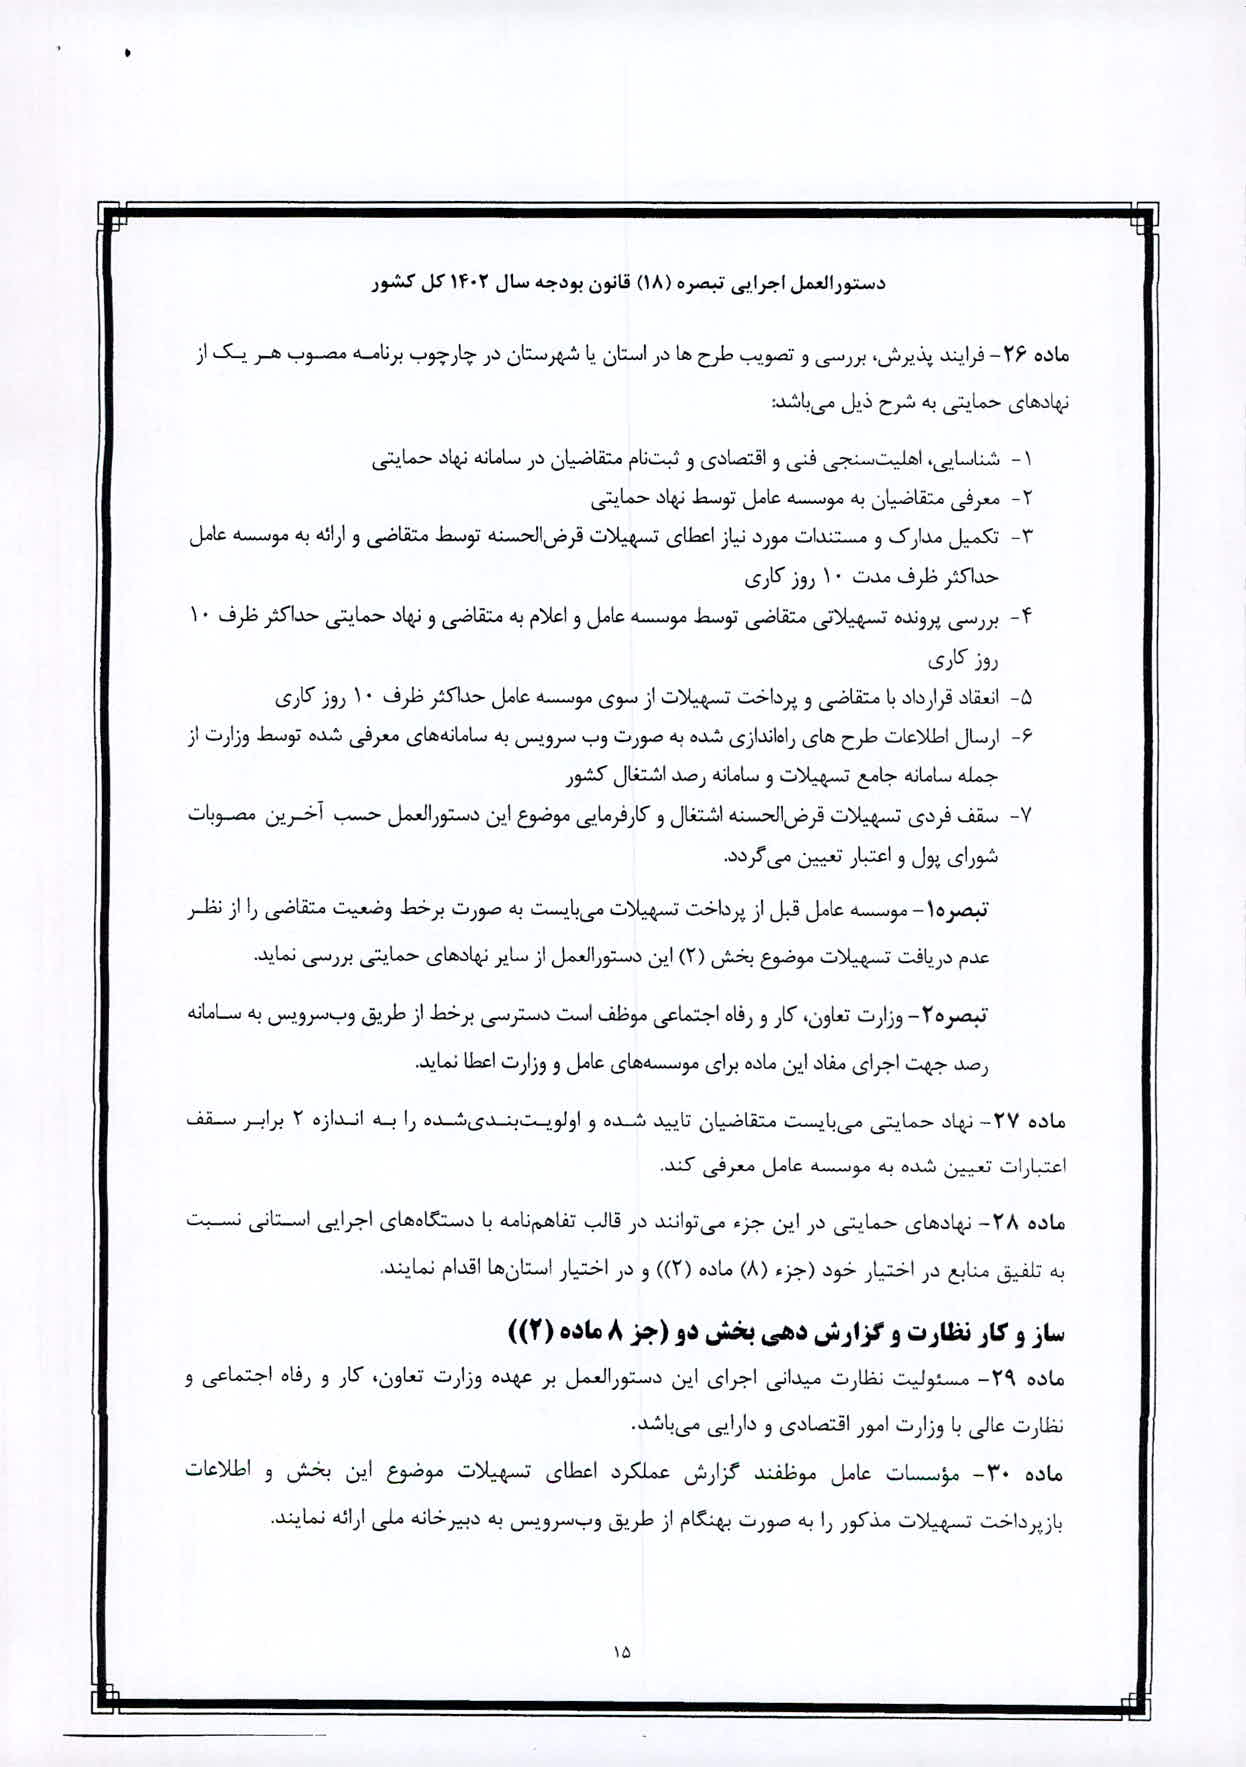 دستورالعمل اجرایی تبصره (۱۸) قانون بودجه سال ۱۴۰۲ کل کشور
ماده ۲۶- فرایند پذیرش، بررسی و تصویب طرح ها در استان یا شهرستان در چارچوب برنامه مصوب هر یک از
نهادهای حمایتی به شرح ذیل می‌باشد:
۱- شناسایی، اهلیت‌سنجی فنی و اقتصادی و ثبت‌نام متقاضیان در سامانه نهاد حمایتی
۲- معرفی متقاضیان به موسسه عامل توسط نهاد حمایتی
۳- تکمیل مدارک و مستندات مورد نیاز اعطای تسهیلات قرض‌الحسنه توسط متقاضی و ارائه به موسسه عامل
حداکثر ظرف مدت ۱۰ روز کاری
۴- بررسی پرونده تسهیلاتی متقاضی توسط موسسه عامل و اعلام به متقاضی و نهاد حمایتی حداکثر ظرف ۱۰
روز کاری
۵- انعقاد قرارداد با متقاضی و پرداخت تسهیلات از سوی موسسه عامل حداکثر ظرف ۱۰ روز کاری
۶- ارسال اطلاعات طرح های راه‌اندازی شده به صورت وب سرویس به سامانه‌های معرفی شده توسط وزارت از
جمله سامانه جامع تسهیلات و سامانه رصد اشتغال کشور
۷- سقف فردی تسهیلات قرض‌الحسنه اشتغال و کارفرمایی موضوع این دستورالعمل حسب آخرین مصوبات
شورای پول و اعتبار تعیین می‌گردد.
تبصره۱- موسسه عامل قبل از پرداخت تسهیلات می‌بایست به صورت برخط وضعیت متقاضی را از نظر
عدم دریافت تسهیلات موضوع بخش (۲) این دستورالعمل از سایر نهادهای حمایتی بررسی نماید.
تبصره۲- وزارت تعاون، کار و رفاه اجتماعی موظف است دسترسی برخط از طریق وب‌سرویس به سامانه
رصد جهت اجرای مفاد این ماده برای موسسه‌های عامل و وزارت اعطا نماید.
ماده ۲۷- نهاد حمایتی می‌بایست متقاضیان تایید شده و اولویت‌بندی‌شده را به اندازه ۲ برابر سقف
اعتبارات تعیین شده به موسسه عامل معرفی کند.
ماده ۲۸- نهادهای حمایتی در این جزء می‌توانند در قالب تفاهم‌نامه با دستگاه‌های اجرایی استانی نسبت
به تلفیق منابع در اختیار خود (جزء (۸) ماده (۲)) و در اختیار استان‌ها اقدام نمایند.
ساز و کار نظارت و گزارش دهی بخش دو (جز ۸ ماده (۲))
ماده ۲۹- مسئولیت نظارت میدانی اجرای این دستورالعمل بر عهده وزارت تعاون، کار و رفاه اجتماعی و
نظارت عالی با وزارت امور اقتصادی و دارایی می‌باشد.
ماده ۳۰- مؤسسات عامل موظفند گزارش عملکرد اعطای تسهیلات موضوع این بخش و اطلاعات
بازپرداخت تسهیلات مذکور را به صورت بهنگام از طریق وب‌سرویس به دبیرخانه ملی ارائه نمایند.
۱۵